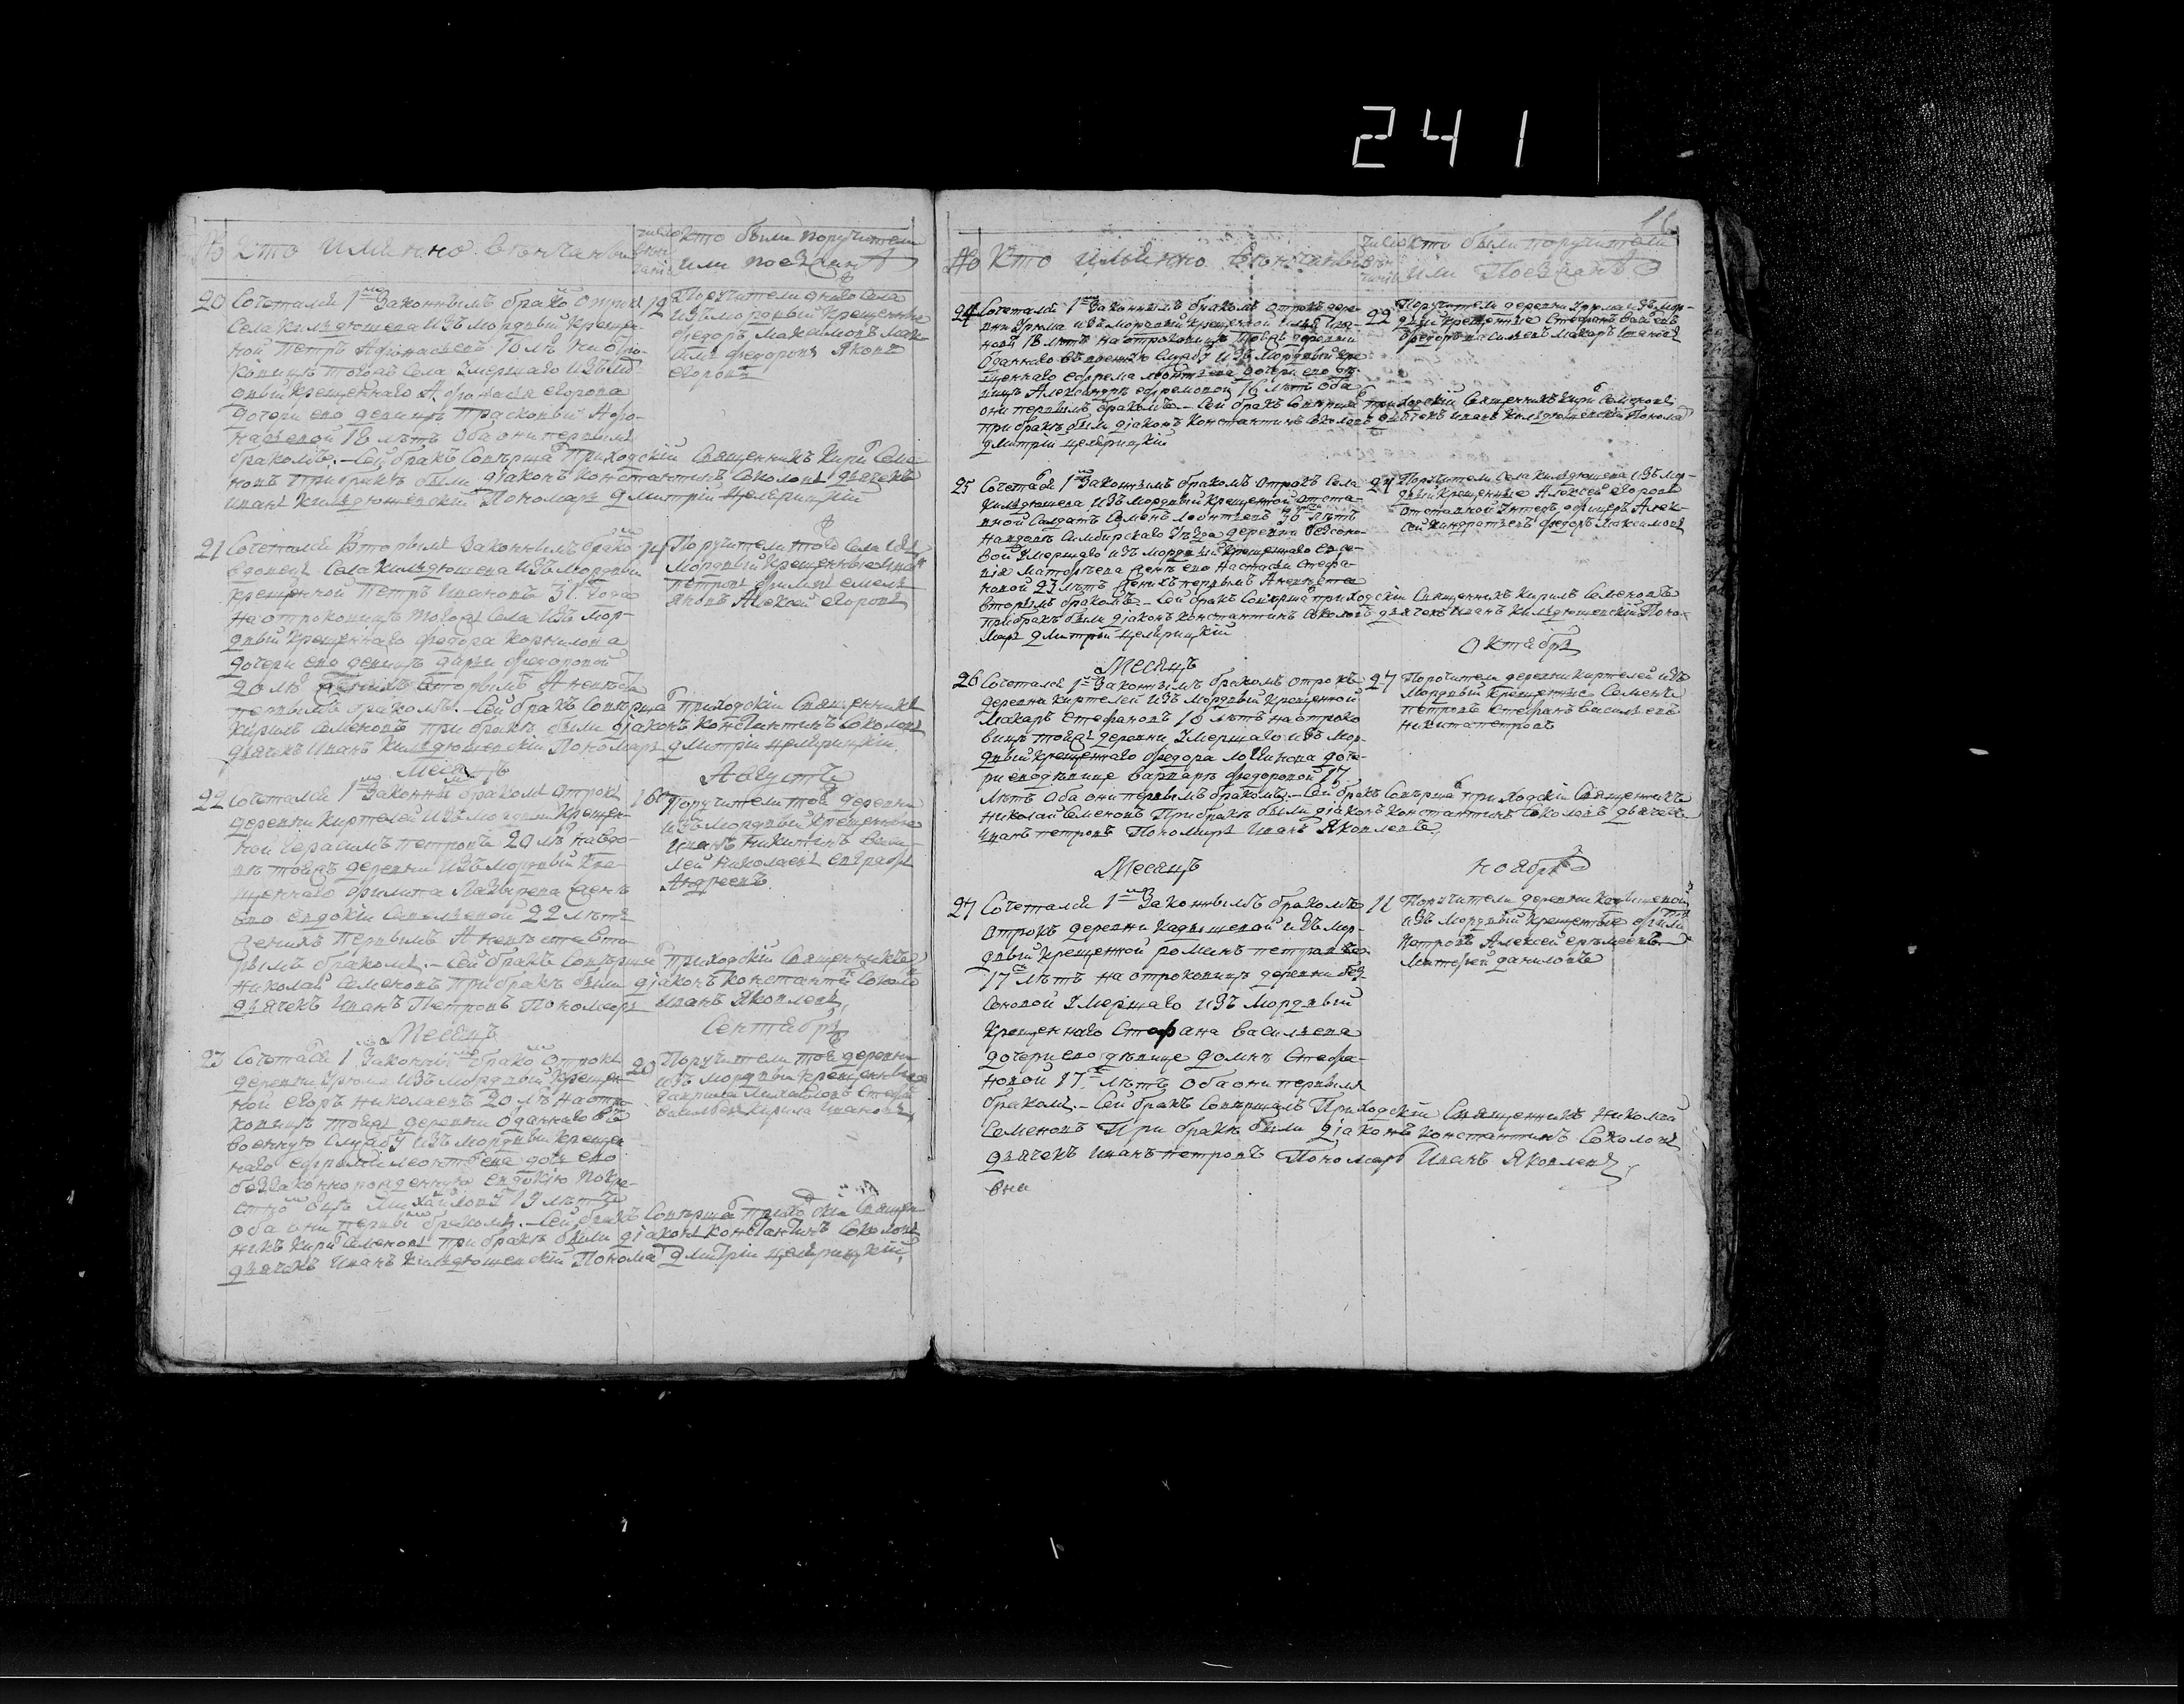 241
16
No Кто именно венчаны
число венчания
Кто были поручители
или поезжанѣ
20 Сочетался 1мъ Законнымъ бракомъ отрокъ
Села Кильдюшева изъ мордвы Креще-
ной Петръ Афонасьевъ 18 лѣ на отро-
ковицѣ тогожъ Села Умершаго изъ мо
рдвы крещеннаго Афонасья егорова
дочери ево девицѣ Прасковьи Афо-
насьевой 18 лѣтъ оба они первымъ
бракомъ. - Сей бракъ Совѣрша Приходскій Священникъ Кирил Семе
новъ При бракѣ были діаконъ Константинъ Соколовъ дьячекъ
иванъ Кильдюшевскій Пономарь Дмитрій
12 Поручители Села
изъ мордвы Крещенные
Федоръ Максимовъ Мак
симъ Федоровъ Яковъ
егоровъ
21 Сочетался Вторымъ Законнымъ бракомъ
вдовецъ Села Кильдюшева изъ Мордвы
крещенной Петръ Ивановъ 31. года
на отроковицѣ тогожъ Села изъ Мор-
двы крещеннаго Федора Корнилова
дочери ево девицѣ Дарьи Федоровой
20 лѣ женихъ вторымъ А невѣста
первымъ бракомъ. - Сей бракъ Совѣрша Приходскій Священникъ
Кирилъ Семеновъ при бракѣ были діаконъ Константинъ Соколовъ
дьячекъ Иванъ Кильдюшевскій Пономарь Дмитрій
14 Поручители того Села изъ
Мордвы Крещенные
Петровъ емель
яновъ Алексей егоровъ
Месяцъ Августъ
22 Сочетался 1мъ Законнымъ бракомъ отрокъ
деревни Киртелей изъ Мордвы Крещен-
ной Герасимъ Петровъ 20 лѣ на вдо-
вѣ тоежъ деревни изъ Мордвы Кре-
щеннаго Филипа Лазырева женѣ
ево евдокіи Савельевой 22 лѣтъ
женихъ первымъ А невѣста вто-
рымъ бракомъ. - Сей бракъ Совѣршил Приходскій Священникъ
Николай Семеновъ при бракѣ были діаконъ Константинъ Соколовъ
дьячекъ Иванъ Петровъ Пономарь Иванъ Яковлевъ
16 Поручители той деревни
изъ Мордвы Крещенные
Иванъ Никитинъ Васи-
лей Николаевъ евграфъ
Андреевъ
Месяцъ Сентябрь
23 Сочетался 1мъ Законнымъ бракомъ отрокъ
деревни Урюма изъ Мордвы Крещен
ной егоръ Николаевъ 20 лѣ на отро
ковицѣ тоежъ деревни Отданнаго въ
военную Службу изъ Мордвы Крещен
наго ефрема Леонтьева дочь ево
беззаконнорожденную евдокію по кре-
стному отцу Михайловъ 19 лѣтъ
оба они первымъ бракомъ. - Сей бракъ Совѣрша Приходскій Священ
никъ Кирил Семеновъ при бракѣ были діаконъ Константинъ Соколовъ
дьячекъ Иванъ Кильдюшевскій Понома Дмитрій
20 Поручители той деревни
изъ Мордвы Крещенные
Гаврила Михайловъ Стефанъ
Васильевъ Кирила Ивановъ
No Кто именно венчаны
число венчания
Кто были поручители
или Поезжанѣ
24 Сочетался 1мъ Законнымъ бракомъ отрокъ дере
вни Урюма изъ Мордвы крещенной Илья Ива-
новъ 18 лѣтъ на отроковицѣ тоежъ деревни
Отданнаго въ военную Службу изъ Мордвы кре
щеннаго ефрема Леонтьева дочери ево де-
вицѣ Александрѣ ефремовой 16 лѣтъ оба
они первымъ бракомъ - Сей бракъ Совѣрша Приходскій Священникъ Кирил Семеновъ
при бракѣ были діаконъ Константинъ Соколовъ дьячекъ Иванъ Кильдюшевскій Понома
Дмитрій
22 Поручители деревни Урюма изъ мор-
двы Крещенные Стефанъ Васильевъ
Федоръ Васильевъ Макаръ Ивановъ
25 Сочетался 1мъ Законнымъ бракомъ отрокъ Села
Кильдюшева изъ Мордвы Крещенной отста-
вной Салдатъ Семенъ Леонтьевъ 30 лѣтъ
на вдовѣ Симбирскаго Уѣзда деревни Безсоно-
вой Умершаго изъ Мордвы Крещеннаго евсе-
вія Матвѣева женѣ ево Настасьи Стефа-
новой 23 лѣтъ женихъ первымъ А невѣста
вторымъ бракомъ. - Сей бракъ Совѣрша приходскій Священникъ Кирилъ Семеновъ
при бракѣ были діаконъ Константинъ Соколовъ дьячекъ Иванъ Кильдюшевскій Поно-
марь Дмитрій
24 Поручители Села Кильдюшева изъ Мор-
двы Крещенные Алексей егоровъ
отставной Унтеръ офицеръ Алек-
сей Киндратьевъ Федоръ Максимовъ
Месяцъ Октябрь
26 Сочетался 1мъ Законнымъ бракомъ отрокъ
деревни Киртелей изъ Мордвы Крещенной
Макаръ Стефановъ 18 лѣтъ на отроко
вицѣ тойжъ деревни Умершаго изъ Мор-
двы Крещеннаго Федора Логинова доче-
ри ево дѣвице Варварѣ Федоровой 17
лѣтъ Оба они первымъ бракомъ. - Сей бракъ Совѣрша приходскій Священникъ
Николай Семеновъ При бракѣ были діаконъ Константинъ Соколовъ дьячекъ
Иванъ Петровъ Пономарь Иванъ Яковлевъ.
27 Поручители деревни Киртелей изъ
Мордвы Крещенные Семенъ
Петровъ Стефанъ Васильевъ
Никита Петровъ
Месяцъ Ноябрь
27 Сочетался 1мъ Законнымъ бракомъ
отрокъ деревни Кадышевой изъ Мор-
двы Крещенной Роминъ Петровъ
17 лѣтъ на отроковицѣ деревни Без-
соновой Умершаго изъ Мордвы
Крещеннаго Стефана Васильева
дочери ево дѣвице Домнѣ Стефа-
новой 17 лѣтъ Оба они первымъ
бракомъ. - Сей бракъ Совѣршалъ Приходскій Священникъ Николай
Семеновъ При бракѣ были діаконъ Константинъ Соколовъ
дьячекъ Иванъ Петровъ Пономарь Иванъ Яковлевъ
11 Поручители деревни Кадышевой
изъ Мордвы Крещенные
Петровъ Алексей еремеевъ
Матвей Даниловъ